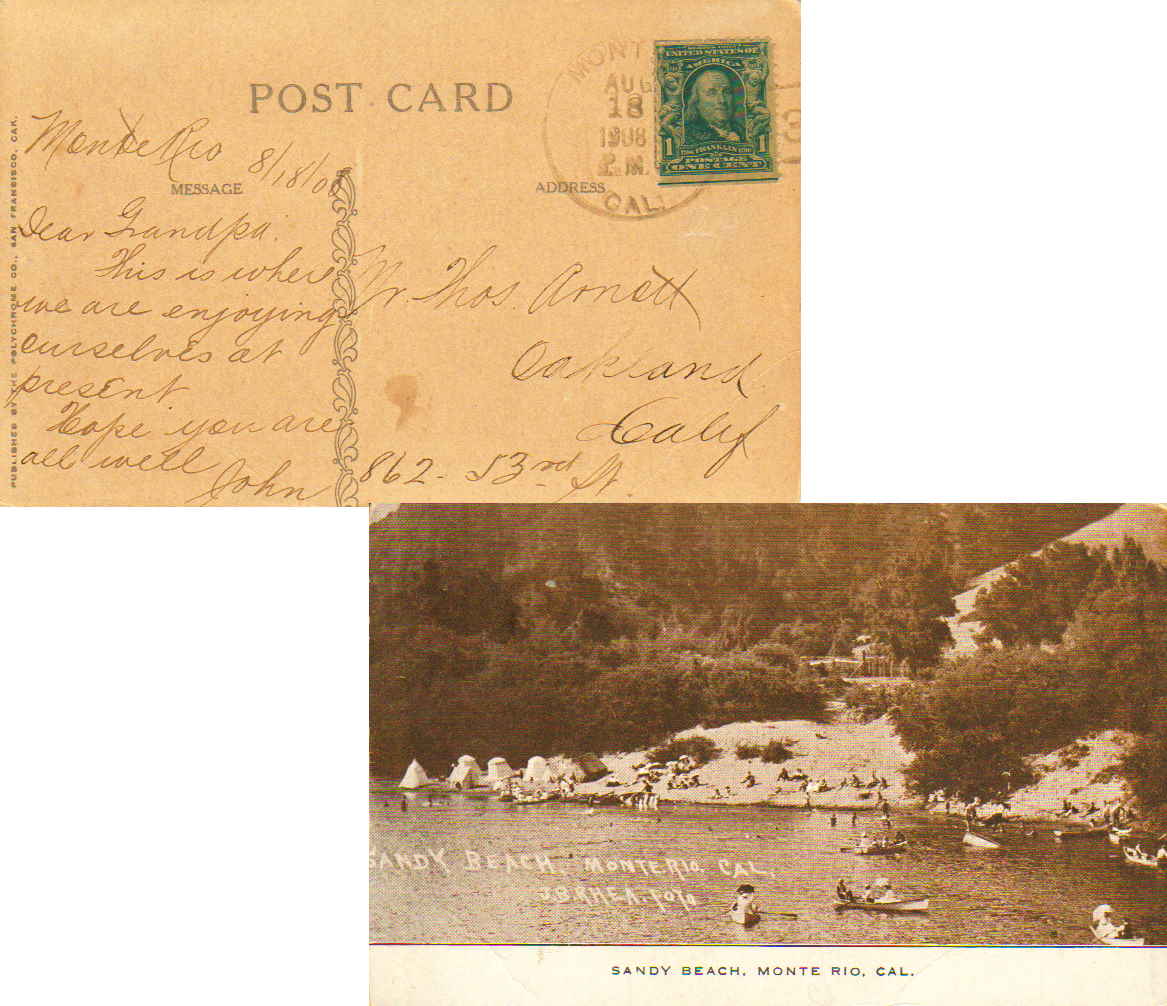 POST CARD
MONT
AUG
18
1908
P.M.
CAL.
3
UNITED STATES OF
AMERICA
1 FRANKLIN 1
POSTAGE
ONE CENT
PUBLISHED BY THE POLYCHROME CO., SAN FRANSISCO, CAL.
Monte Rio
8/18/08
MESSAGE
ADDRESS
Dear Grandpa.
This is where
we are enjoying
ourselves at
present
Hope you are
all well
John
Mr. Thos. Arnett
Oakland
Calif
862 - 53rd St.
SANDY BEACH, MONTE RIO, CAL.
J.B. RHEA. FOTO
SANDY BEACH, MONTE RIO, CAL.